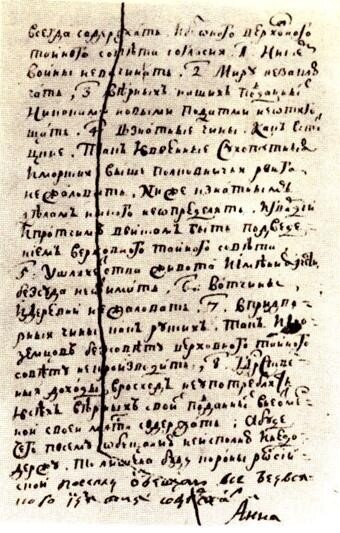 всегда содержать, и безоного верховного
тайного совѣта согласия. 1 Нискем
воины невсчинать. 2 Миру незаклю
чать, 3 вѣрныхъ нашихъ подданых
Никакими новыми податми неотяго
щать. 4. Взнатные чины. Какъ встат
цкие. Такъ ивоенные Сухопутныя
Иморския выше полковничья ранга
нежаловать. Ниже кзнатнымъ
дѣламъ никого неопределять. Игвардии
Ипротчимъ полкамъ быть подведе
ниемъ верховного тайного совѣта
5 Ушляхетства живота Иимѣния ичести
безсуда неотимать. 6. Вотчины,
Идеревни нежаловать. 7. Впридво-
рныя чины какъ рускихъ. Такъ Ино
земцовъ безсовѣту верховного тайного
совѣта непроизводить, 8. Государстве
ныя доходы врасходъ неупотреблять
Ивсѣхъ вѣрныхъ своихъ поданныхъ внеотмѣ
ной своей милости содержать; Абуде
чего посему обѣщанию неисполню Инедо
держу. То лишена буду короны росиский
по сему обещаю все безъвся-
каго изятия содержать
Анна